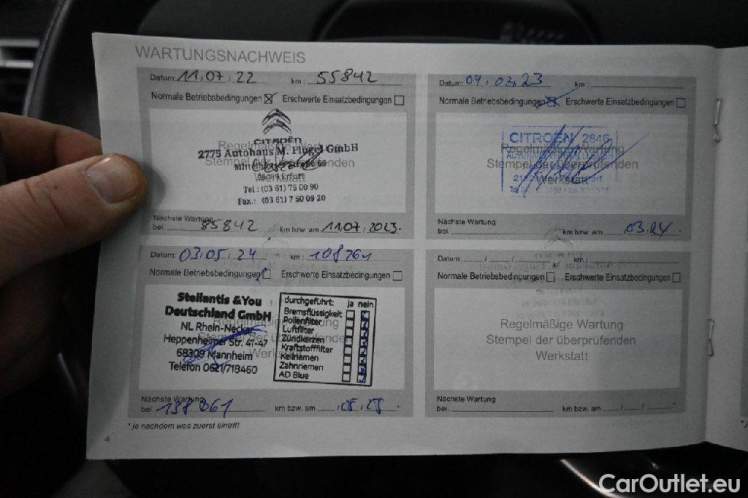 WARTUNGSNACHWEIS
Datum: 11.07.22 km: 55842
Normale Betriebsbedingungen Erschwerte Einsatzbedingungen
CITROËN
2775 Autohaus M. Flügel GmbH
Erfurt
Tel.: (03 61) 75 00 90
Fax.: (03 61) 7 50 09 20
Nächste Wartung
bei 85842 km bzw. am 11.07.2023
Datum: 04.07.23 km:
Normale Betriebsbedingungen Erschwerte Einsatzbedingungen
CITROËN
Regelmäßige Wartung
Stempel der überprüfenden
Werkstatt
Nächste Wartung
bei km bzw. am 03.24
Datum: 03.05.24 km: 108761
Normale Betriebsbedingungen Erschwerte Einsatzbedingungen
Stellantis &You
Deutschland GmbH
NL Rhein-Neckar
Heppenheimer Str. 41-47
68309 Mannheim
Telefon 0621/718460
durchgeführt: ja nein
Bremsflüssigkeit
Pollenfilter
Luftfilter
Zündkerzen
Kraftstofffilter
Keilriemen
Zahnriemen
AD Blue
Nächste Wartung
bei 138761 km bzw. am 05.25
Datum: / / km:
Normale Betriebsbedingungen Erschwerte Einsatzbedingungen
Regelmäßige Wartung
Stempel der überprüfenden
Werkstatt
Nächste Wartung
bei km bzw. am / /
* je nachdem was zuerst eintrifft
4
CarOutlet.eu